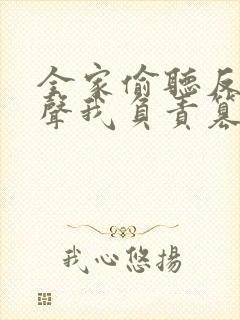 全家偷聽反
聲我負責簒
我心悠揚